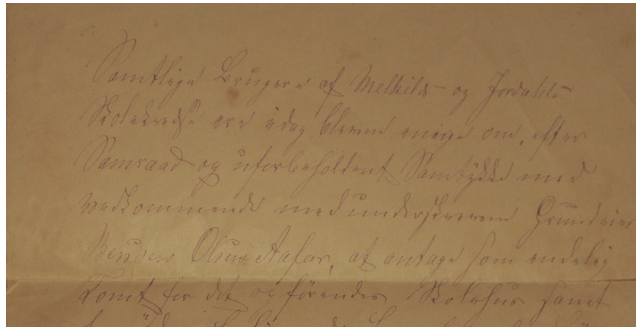 Samtlige Brugere af Melhilds- og Jordahls
Skolekreds ere idag blevne enige om, efter
Samraad og uforbeholdent Samtykke med
vedkommende medunderskrevne Grundeier
Olsen at antage som endelig
Tomt for det opførendes Skolehus samt